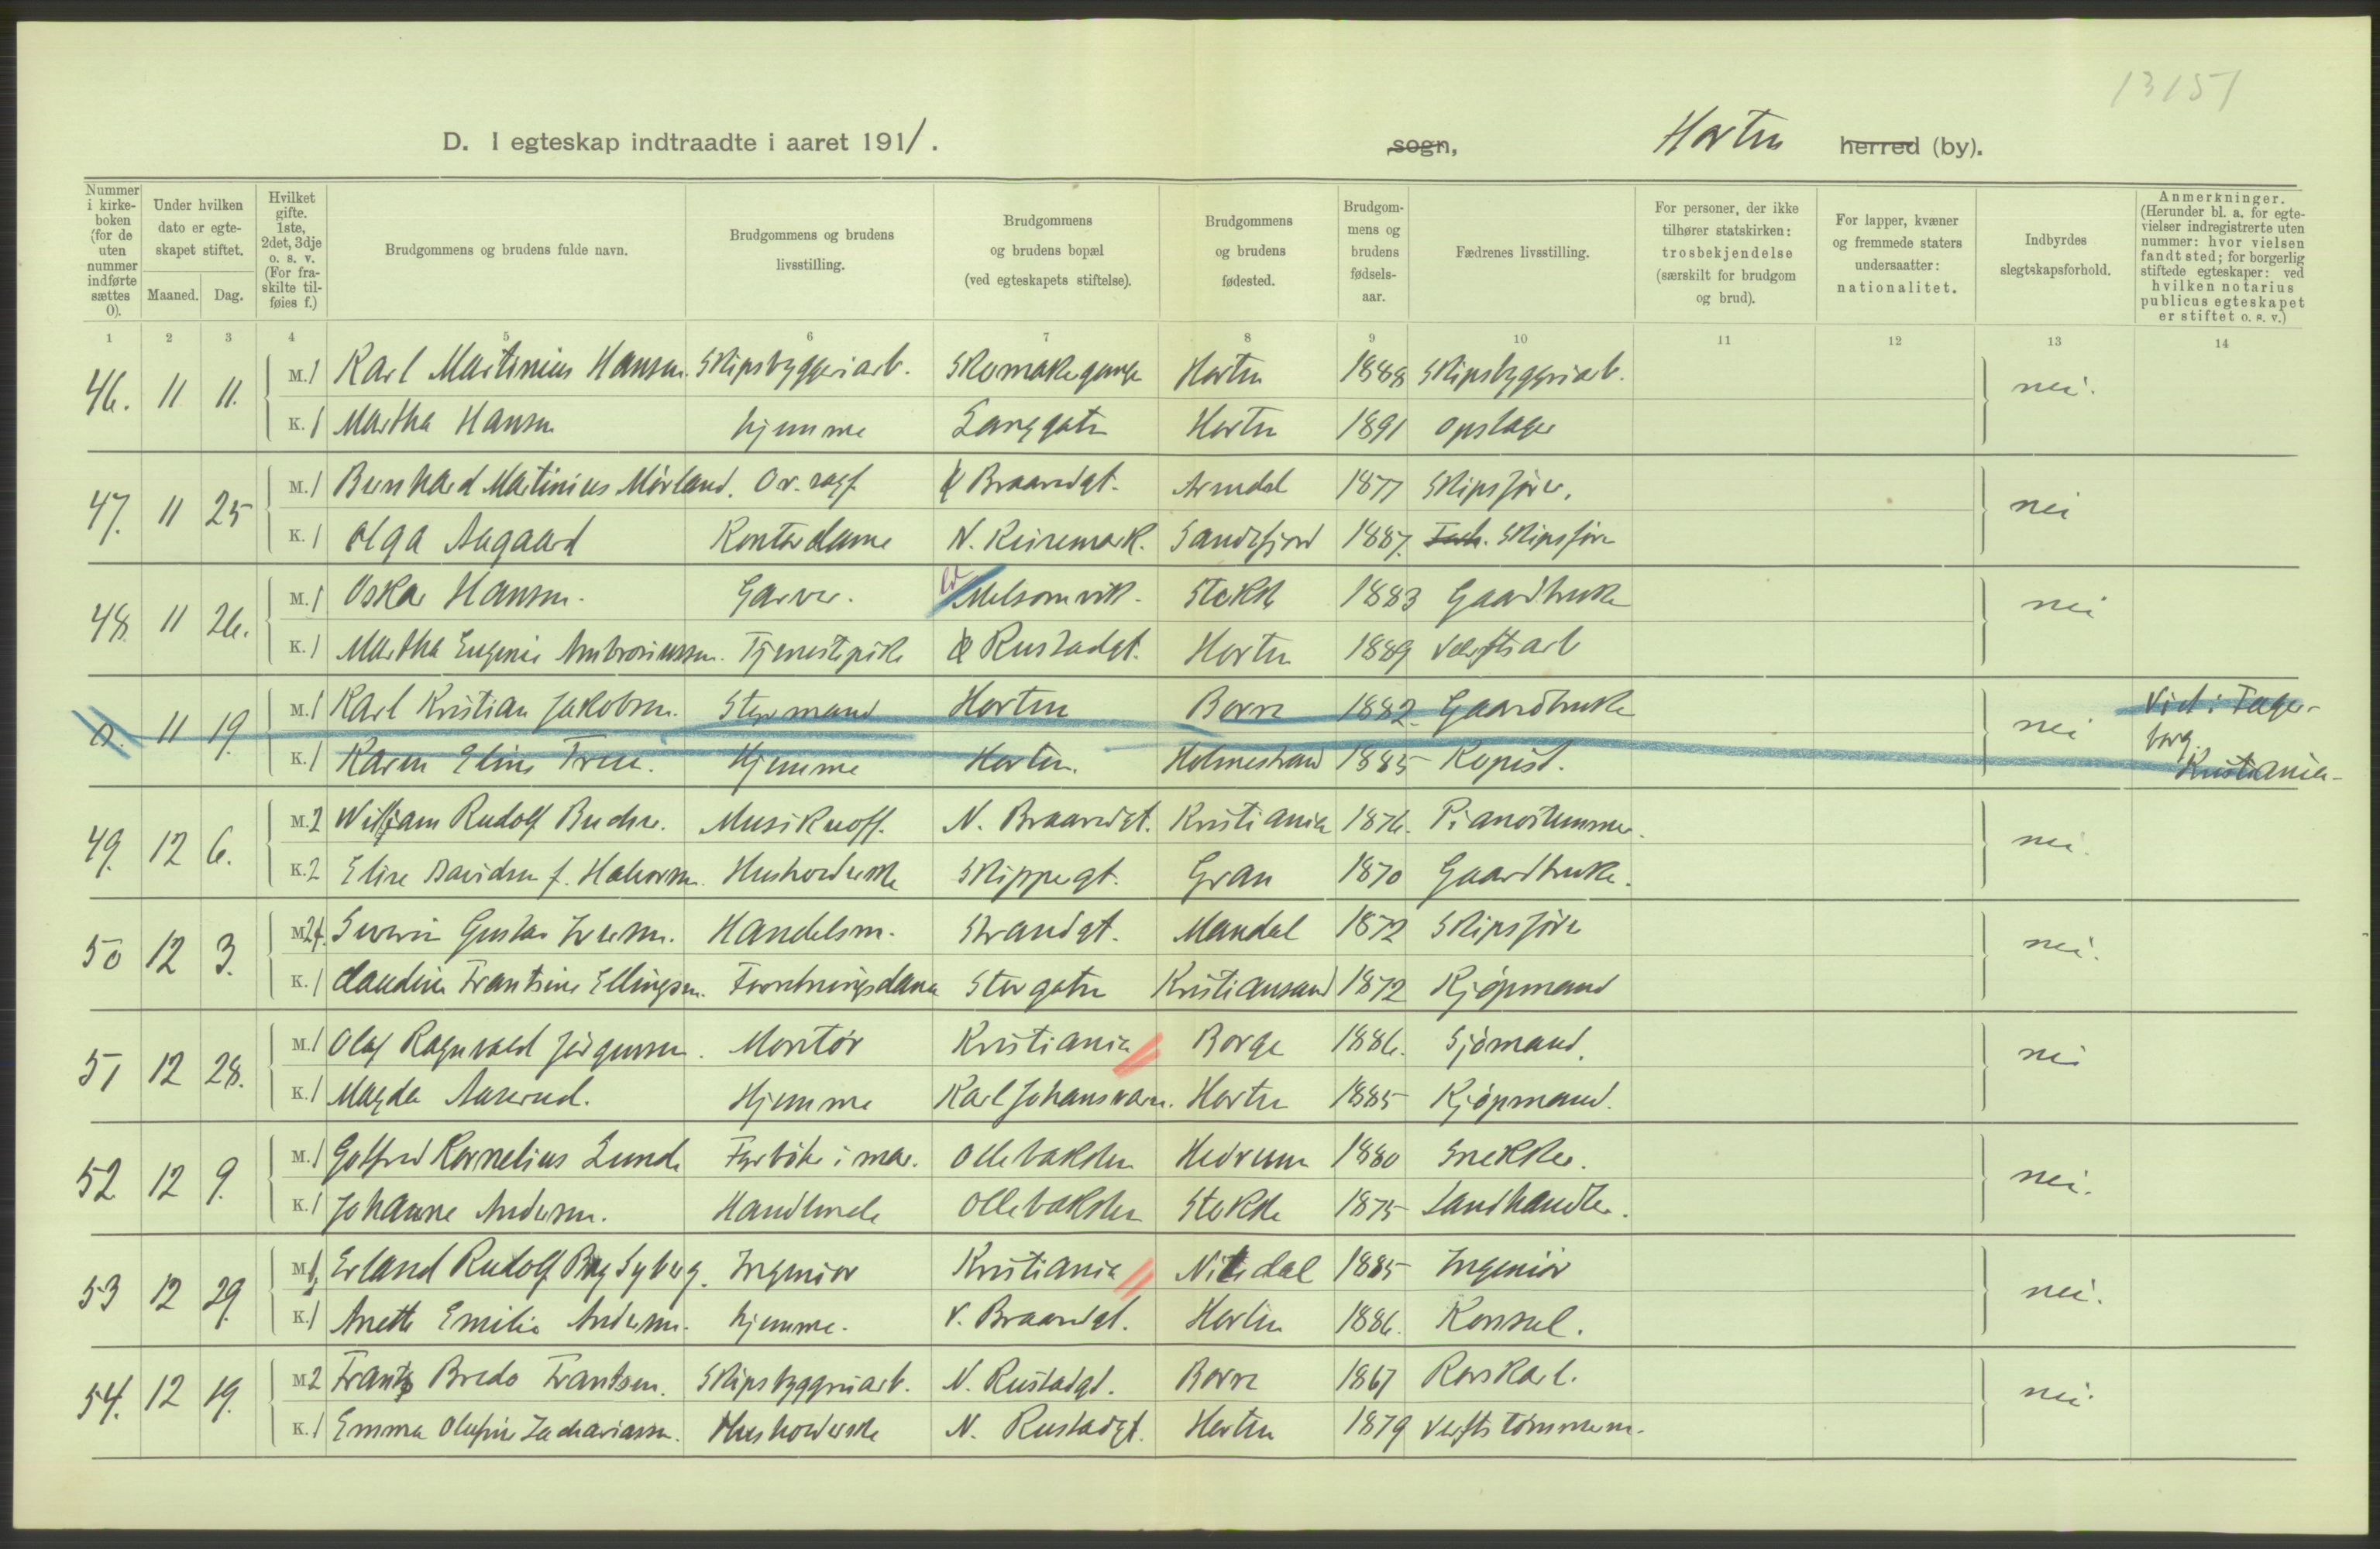 13151
D. I egteskap indtraadte i aaret 1911. sogn, Horten herred (by).
Nummer i kirke-boken (for de uten nummer indførte sættes 0).
Under hvilken dato er egte-skapet stiftet.
Maaned. Dag.
Hvilket gifte. 1ste, 2det, 3dje o. s. v. (For fra-skilte til-føies f.)
Brudgommens og brudens fulde navn.
Brudgommens og brudens livsstilling.
Brudgommens og brudens bopæl (ved egteskapets stiftelse).
Brudgommens og brudens fødested.
Brudgom-mens og brudens fødsels-aar.
Fædrenes livsstilling.
For personer, der ikke tilhører statskirken: trosbekjendelse (særskilt for brudgom og brud).
For lapper, kvæner og fremmede staters undersaatter: nationalitet.
Indbyrdes slegtskapsforhold.
Anmerkninger. (Herunder bl. a. for egte-vielser indregistrerte uten nummer: hvor vielsen fandt sted; for borgerlig stiftede egteskaper: ved hvilken notarius publicus egteskapet er stiftet o. s. v.)
1 2 3 4 5 6 7 8 9 10 11 12 13 14
46. 11 11. M. 1 Karl Martinius Hansen. Skipsbyggeriarb. Horten 1888 Skipsbyggeriarb. nei.
K. 1 Martha Hansen hjemme Langgaten Horten 1891 opslager
47. 11 25 M. 1 Bernhard Martinius Mörland. Ov. sagf. Braaredgt. Arendal 1877 Skipsförer. nei
K. 1 Olga Aagaard Kontordame N. Keisemark. Sandefjord 1887. Skipsförer
48. 11 26. M. 1 Oskar Hansen. Garver. Melsomvik. Stokke 1883 Gaardbruker nei
K. 1 Martha Eugenie Ambrosiussen. Tjenestepike Rustadgt. Horten 1889 Verftsarb
0. 11 19. M. 1 Karl Kristian Jakobsen. Styrmand Horten Borre 1882. Gaardbruker nei Viet i Fager-
borg.
K. 1 Karen Eline Hjemme Horten. Holmestrand 1885 Kopist. Kristiania-
49. 12 6. M. 2 William Rudolf Musikuoff. N. Braaredgt. Kristiania 1876. Pianostemmer. nei.
K. 2 Elise Davidsen f. Halvorsen. Husholderske Skippergt. Gran 1870 Gaardbruker.
50 12 3. M. 2f. Severin Gustav Iversen. Handelsm. Strandgt. Mandal 1872 Skipsförer nei.
K. 1 Claudine Frantsine Ellingsen. Forretningsdame Storgaten Kristiansand 1872 Kjöpmand
51 12 28. M. 1 Olaf Ragnvald Jörgensen. Montör Kristiania Borge 1886. Sjömand. nei
K. 1 Magda Aaserud. Hjemme Karljohansværn. Horten 1885 Kjöpmand.
52 12 9. M. 1 Gotfred Kornelius Lunde Fyrböter i mar. Ollebakken Hedrum 1880 Snekker. nei.
K. 1 Johanne Andersen. Handlende Ollebakken Stokke 1875 Landhandler.
53 12 29. M. 1 Erland Rudolf Syberg. Ingeniör Kristiania Nitedal 1885 Ingeniör nei.
K. 1 Anette Emilie Andersen. hjemme. V. Braaredgt. Horten 1886. Konsul.
54. 12 19. M. 2 Frantz Bredo Frantsen. Skipsbyggeriarb. N. Rustadgt. Borre 1867 Rorskarl. nei.
K. 1 Emma Olufine Zachariassen. Husholderske N. Rustadgt. Horten 1879 Verftstömmerm.